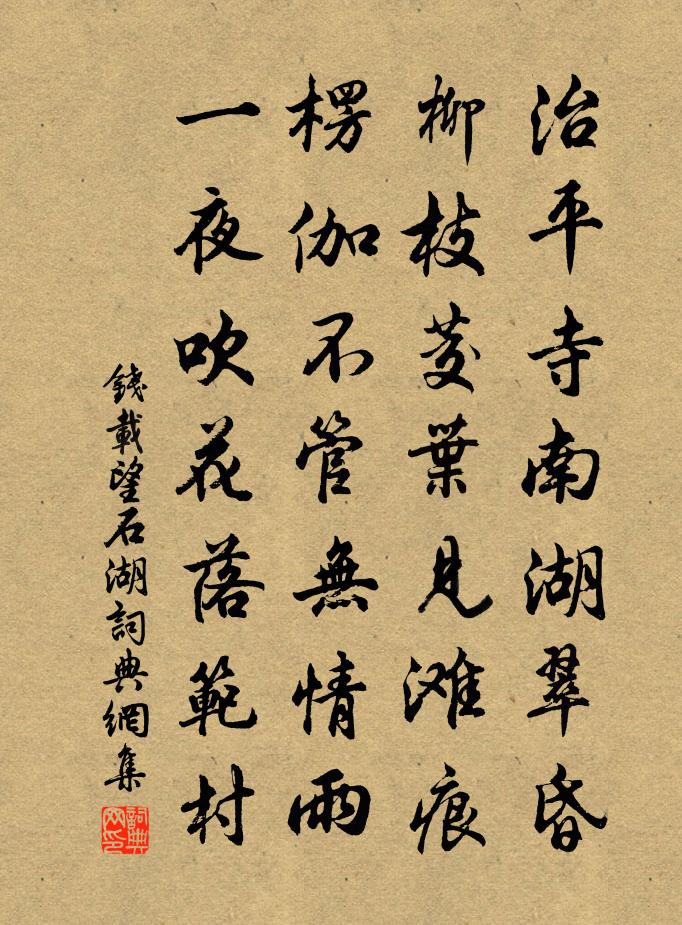 治平寺南湖翠昏
柳枝茭葉見滩痕
楞伽不管無情雨
一夜吹花落範村
錢載望石湖詞典網集
詞典网印